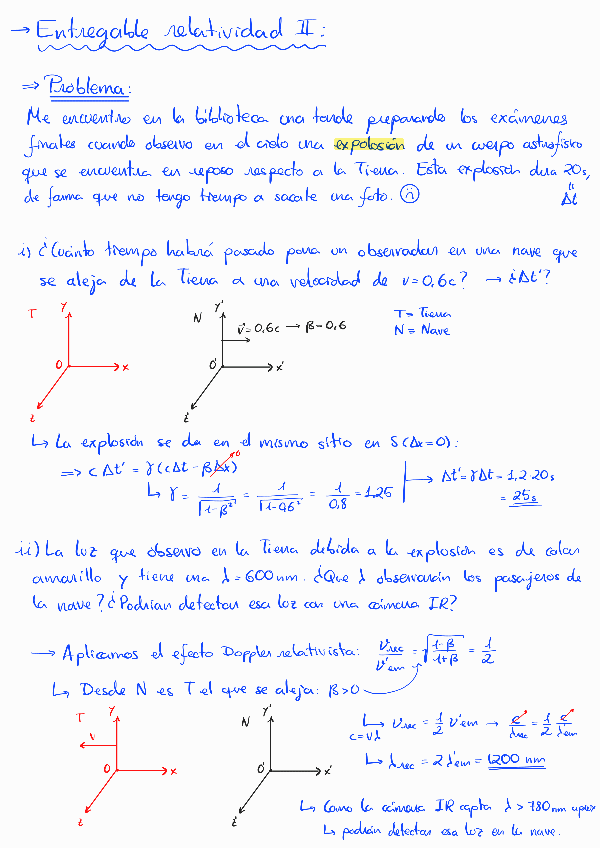 → Entregable relatividad II:
⇒ Problema:
Me encuentro en la biblioteca una tarde preparando los exámenes
finales cuando observo en el cielo una expolosión de un cuerpo astrofísico
que se encuentra en reposo respecto a la Tierra. Esta explosión dura 20s,
de forma que no tengo tiempo a sacarle una foto. ☹ Δt
i) ¿Cuánto tiempo habrá pasado para un observador en una nave que
se aleja de la Tierra a una velocidad de v=0,6c? → ¿Δt'?
T Y O X Z
N Y' v=0,6c → β=0,6 O' X' Z'
T= Tierra
N= Nave
↳ La explosión se da en el mismo sitio en S (Δx=0):
⇒ cΔt' = γ(cΔt - βΔx) 0
↳ γ = 1/√(1-β²) = 1/√(1-0,6²) = 1/0,8 = 1,25
→ Δt' = γΔt = 1,2·20s
= 25s
ii) La luz que observo en la Tierra debida a la explosión es de color
amarillo y tiene una λ=600nm. ¿Que λ observarán los pasajeros de
la nave? ¿Podrían detectar esa luz con una cámara IR?
→ Aplicamos el efecto Doppler relativista: ν_rec/ν'_em = √((1-β)/(1+β)) = 1/2
↳ Desde N es T el que se aleja: β>0
T Y v O X Z
N Y' O' X' Z'
↳ ν_rec = 1/2 ν'_em → c/λ_rec = 1/2 c/λ'_em
c=νλ
↳ λ_rec = 2λ'_em = 1200 nm
↳ Como la cámara IR capta λ>780nm aprox
↳ podrán detectar esa luz en la nave.